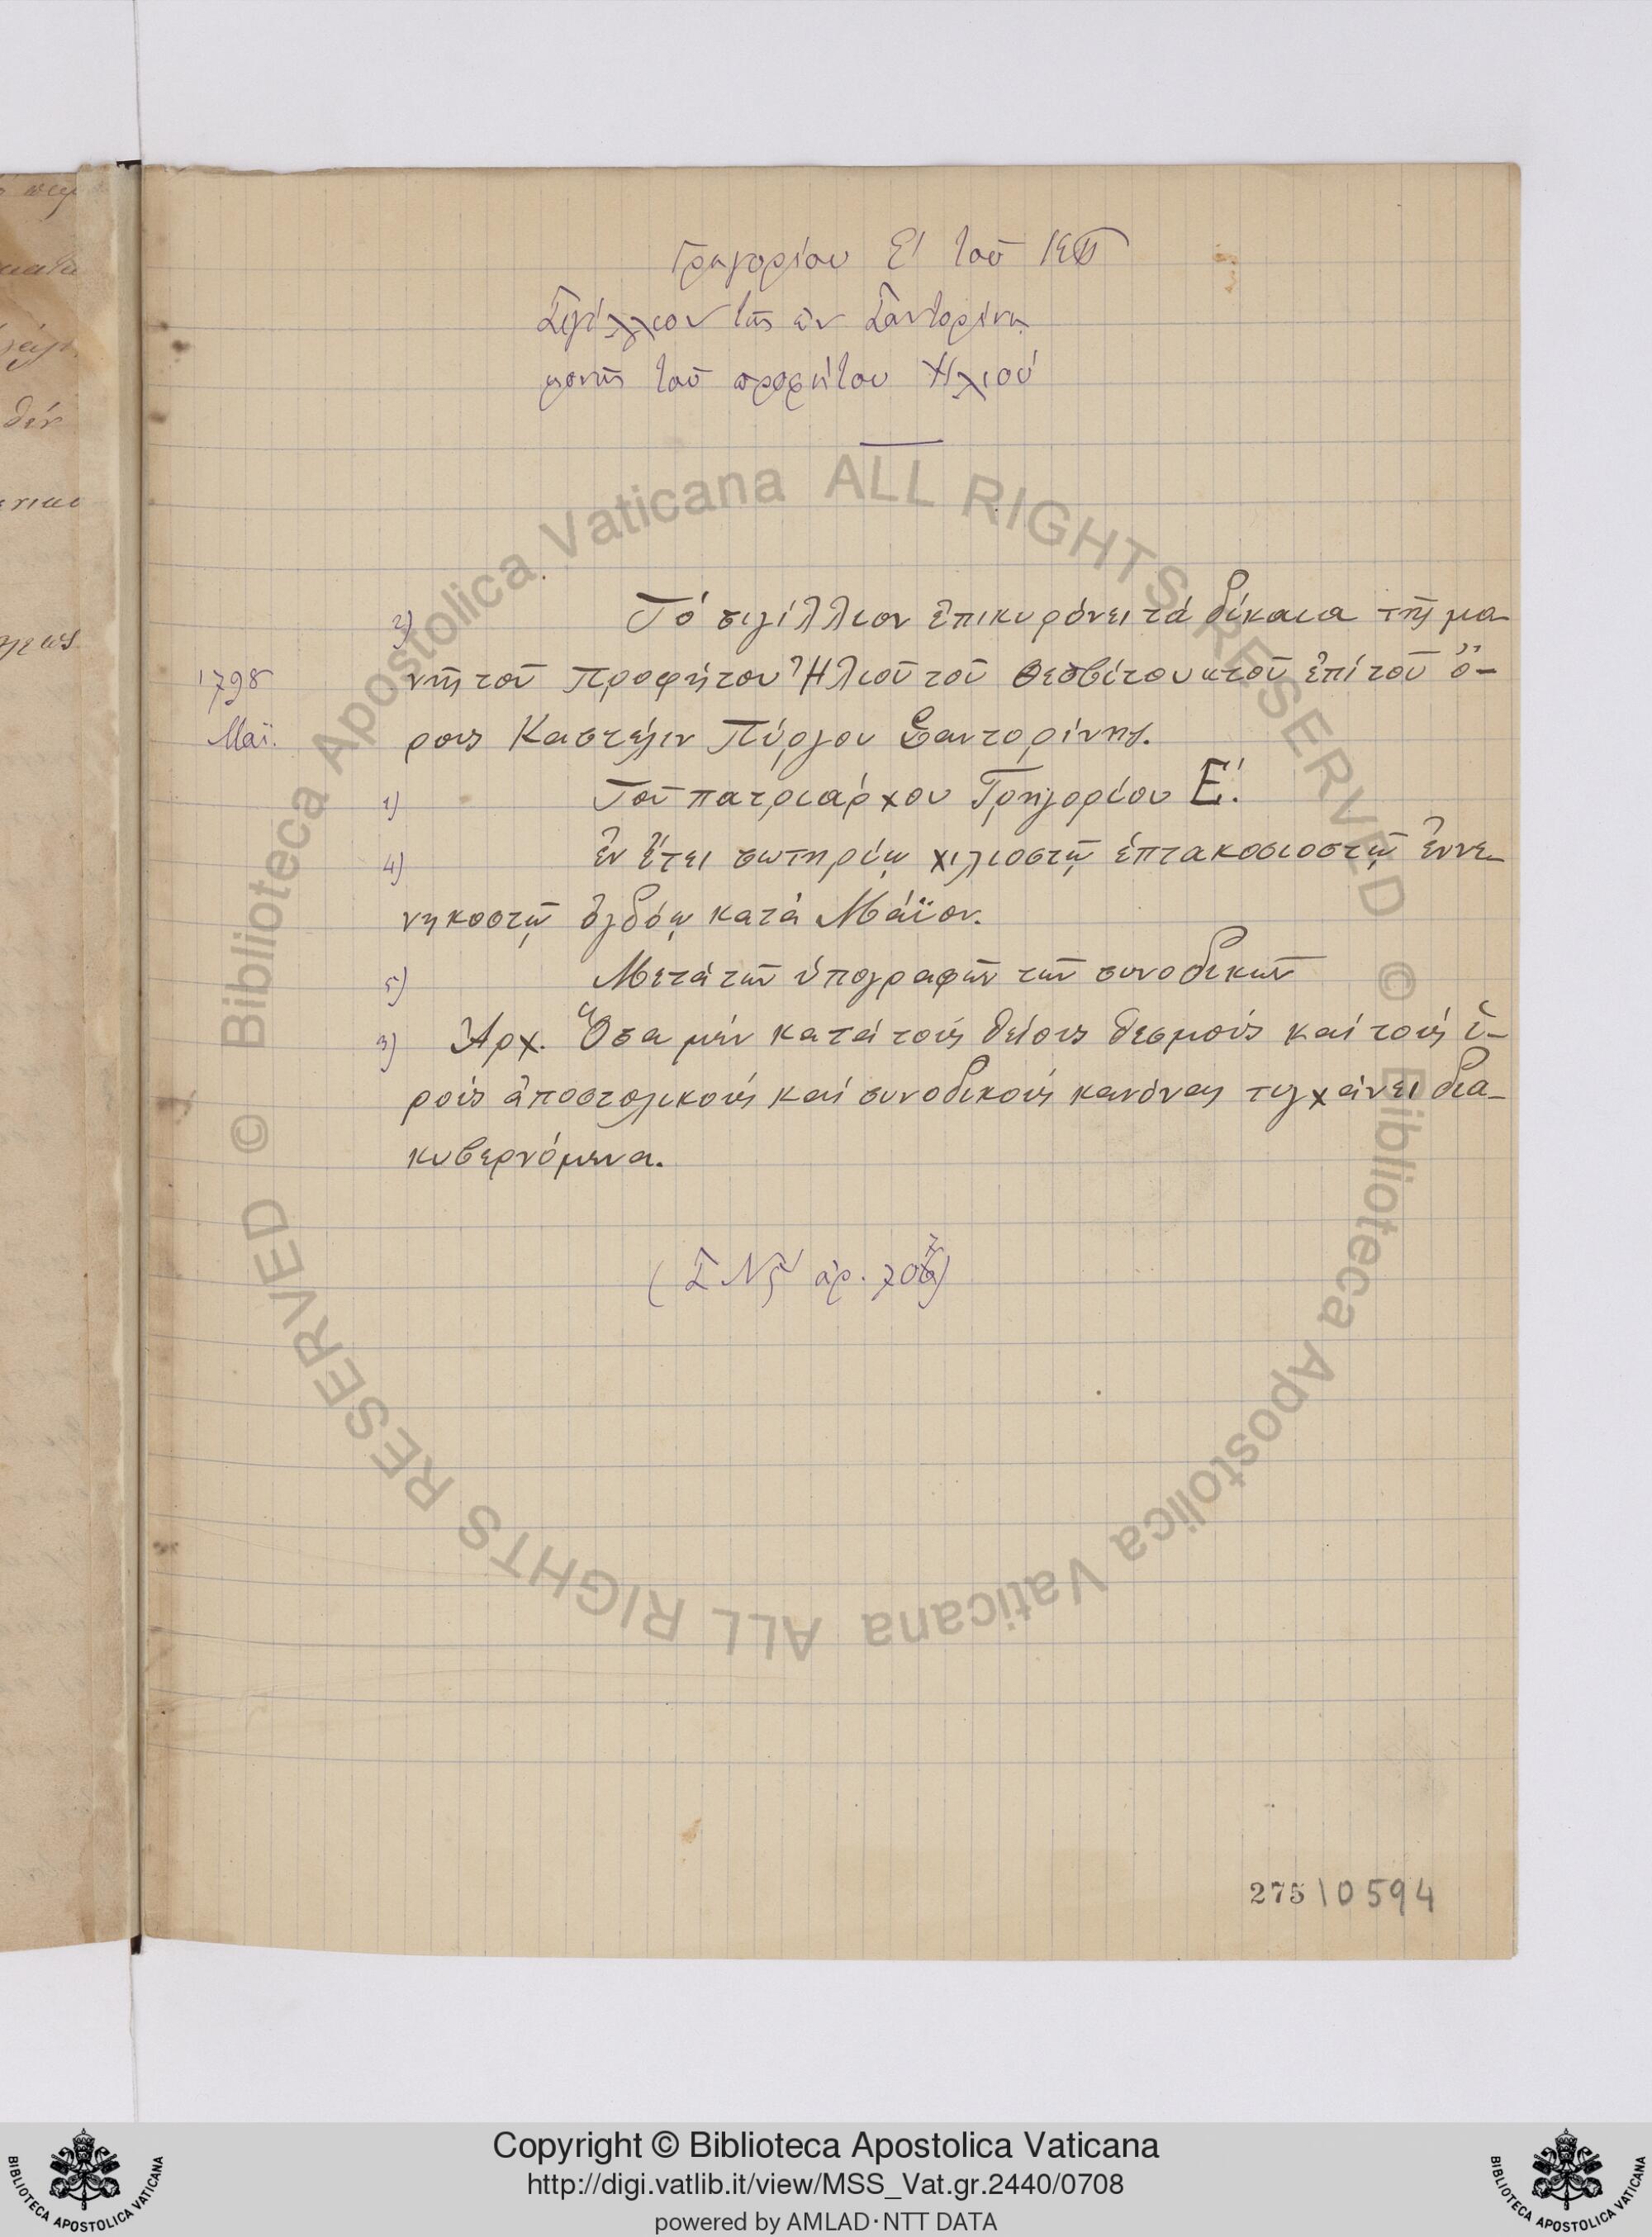 Γρηγορίου Ε' τοῦ ΚΠ
Σιγίλλιον τῆς ἐν Σαντορίνῃ
μονῆς τοῦ προφήτου Ἠλιού
2) Τό σιγίλλιον ἐπικυρόνει τά δίκαια τῆς μο-
1798 νῆς τοῦ Προφήτου Ἠλιοῦ τοῦ Θεσβίτου τοῦ ἐπί τοῦ ὄ-
Μαΐ. ρους Καστέλιν Πύργου Σαντορίνης.
1) Τοῦ πατριάρχου Γρηγορίου Ε'.
4) ἐν ἔτει σωτηρίῳ χιλιοστῷ ἑπτακοσιοστῷ ἐννε-
νηκοστῷ ὀγδόῳ κατά Μάϊον.
5) Μετά τῶν ὑπογραφῶν τῶν συνοδικῶν
3) Ἀρχ. Ὅσα μέν κατά τούς θείους θεσμούς καί τούς ἱε-
ρούς ἀποστολικούς καί συνοδικούς κανόνας τυγχάνει δια-
κυβερνόμενα.
ἀρ. 707)
275 \ 0594
© Biblioteca Apostolica Vaticana ALL RIGHTS RESERVED
© Biblioteca Apostolica Vaticana ALL RIGHTS RESERVED
BIBLIOTECA APOSTOLICA VATICANA
Copyright © Biblioteca Apostolica Vaticana
http://digi.vatlib.it/view/MSS_Vat.gr.2440/0708
powered by AMLAD·NTT DATA
BIBLIOTECA APOSTOLICA VATICANA